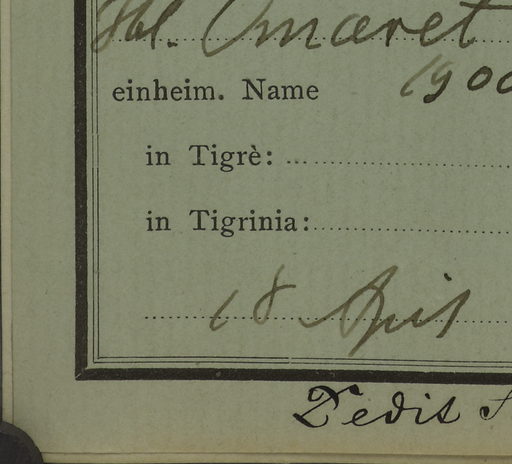 Hbl. Omaret
einheim. Name 1900
in Tigrè: ...
in Tigrinia:
18 April
Dedit